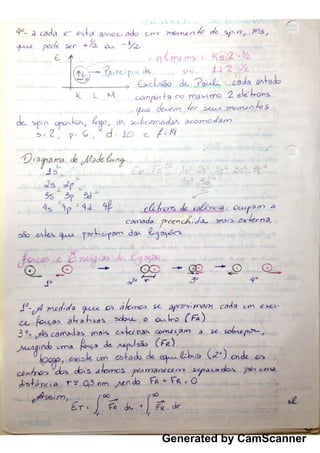 4º- a cada e⁻ está associado um momento de spin, ms,
que pode ser +½ ou -½
E
n l m ms
Princípio de
Exclusão de Pauli: cada estado
K L M
comporta no máximo 2 elétrons
que devem ter seus momentos
de spin opostos, logo, as subcamadas acomodam:
s=2, p=6, d=10 e f=14
Diagrama de Madelung
1s
2s 2p
3s 3p 3d
4s 4p 4d 4f
elétrons de valência: ocupam a
camada preenchida mais externa,
são estes que participam das ligações.
Forças e Energias de Ligação
1º 2º r 3º 4º
1º- À medida que os átomos se aproximam cada um exer-
ce forças atrativas sobre o outro (FA)
3º- As camadas mais externas começam a se sobrepor,
surgindo uma força de repulsão (FR)
Logo, existe um estado de equilíbrio (2º) onde os
centros dos dois átomos permanecem separados por uma
distância r ≈ 0,3 nm, sendo FA + FR = 0
Assim,
ET = ∫ ∞ FA dr + ∫ ∞ FR dr
Generated by CamScanner